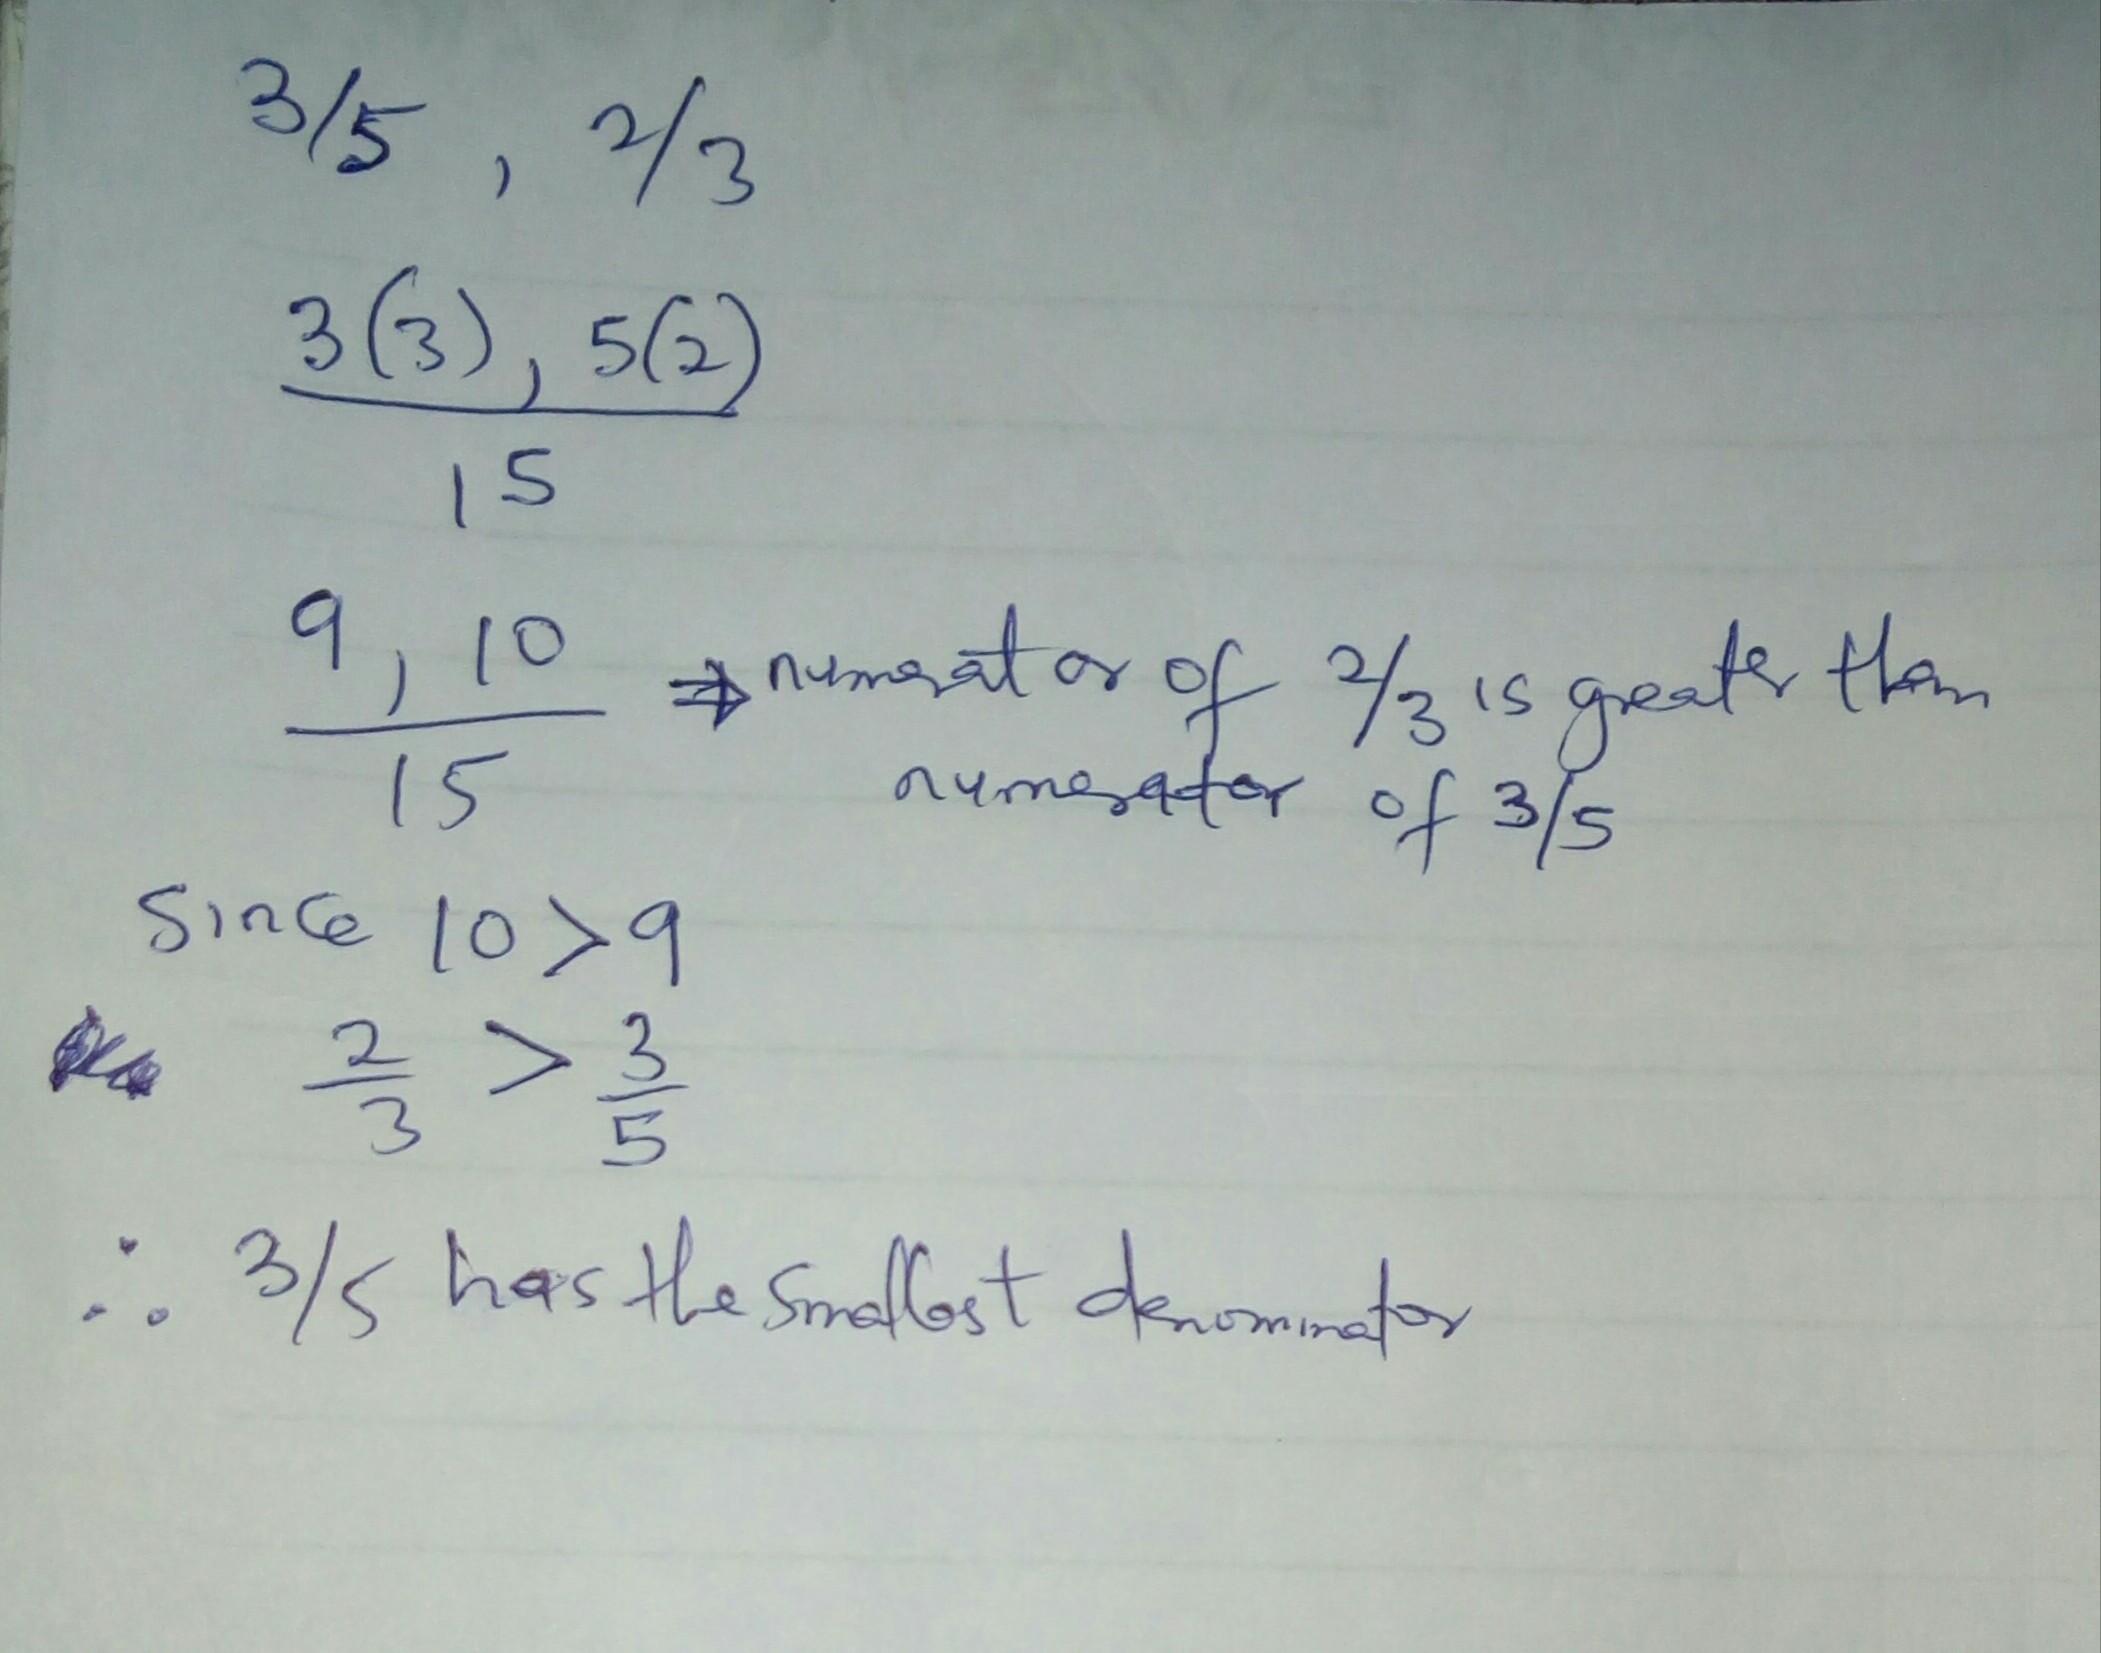 3/5 , 2/3
3(3), 5(2)
15
9, 10 ⇒ numerator of 2/3 is greater than
15 numerator of 3/5
Since 10 > 9
2/3 > 3/5
∴ 3/5 has the smallest denominator